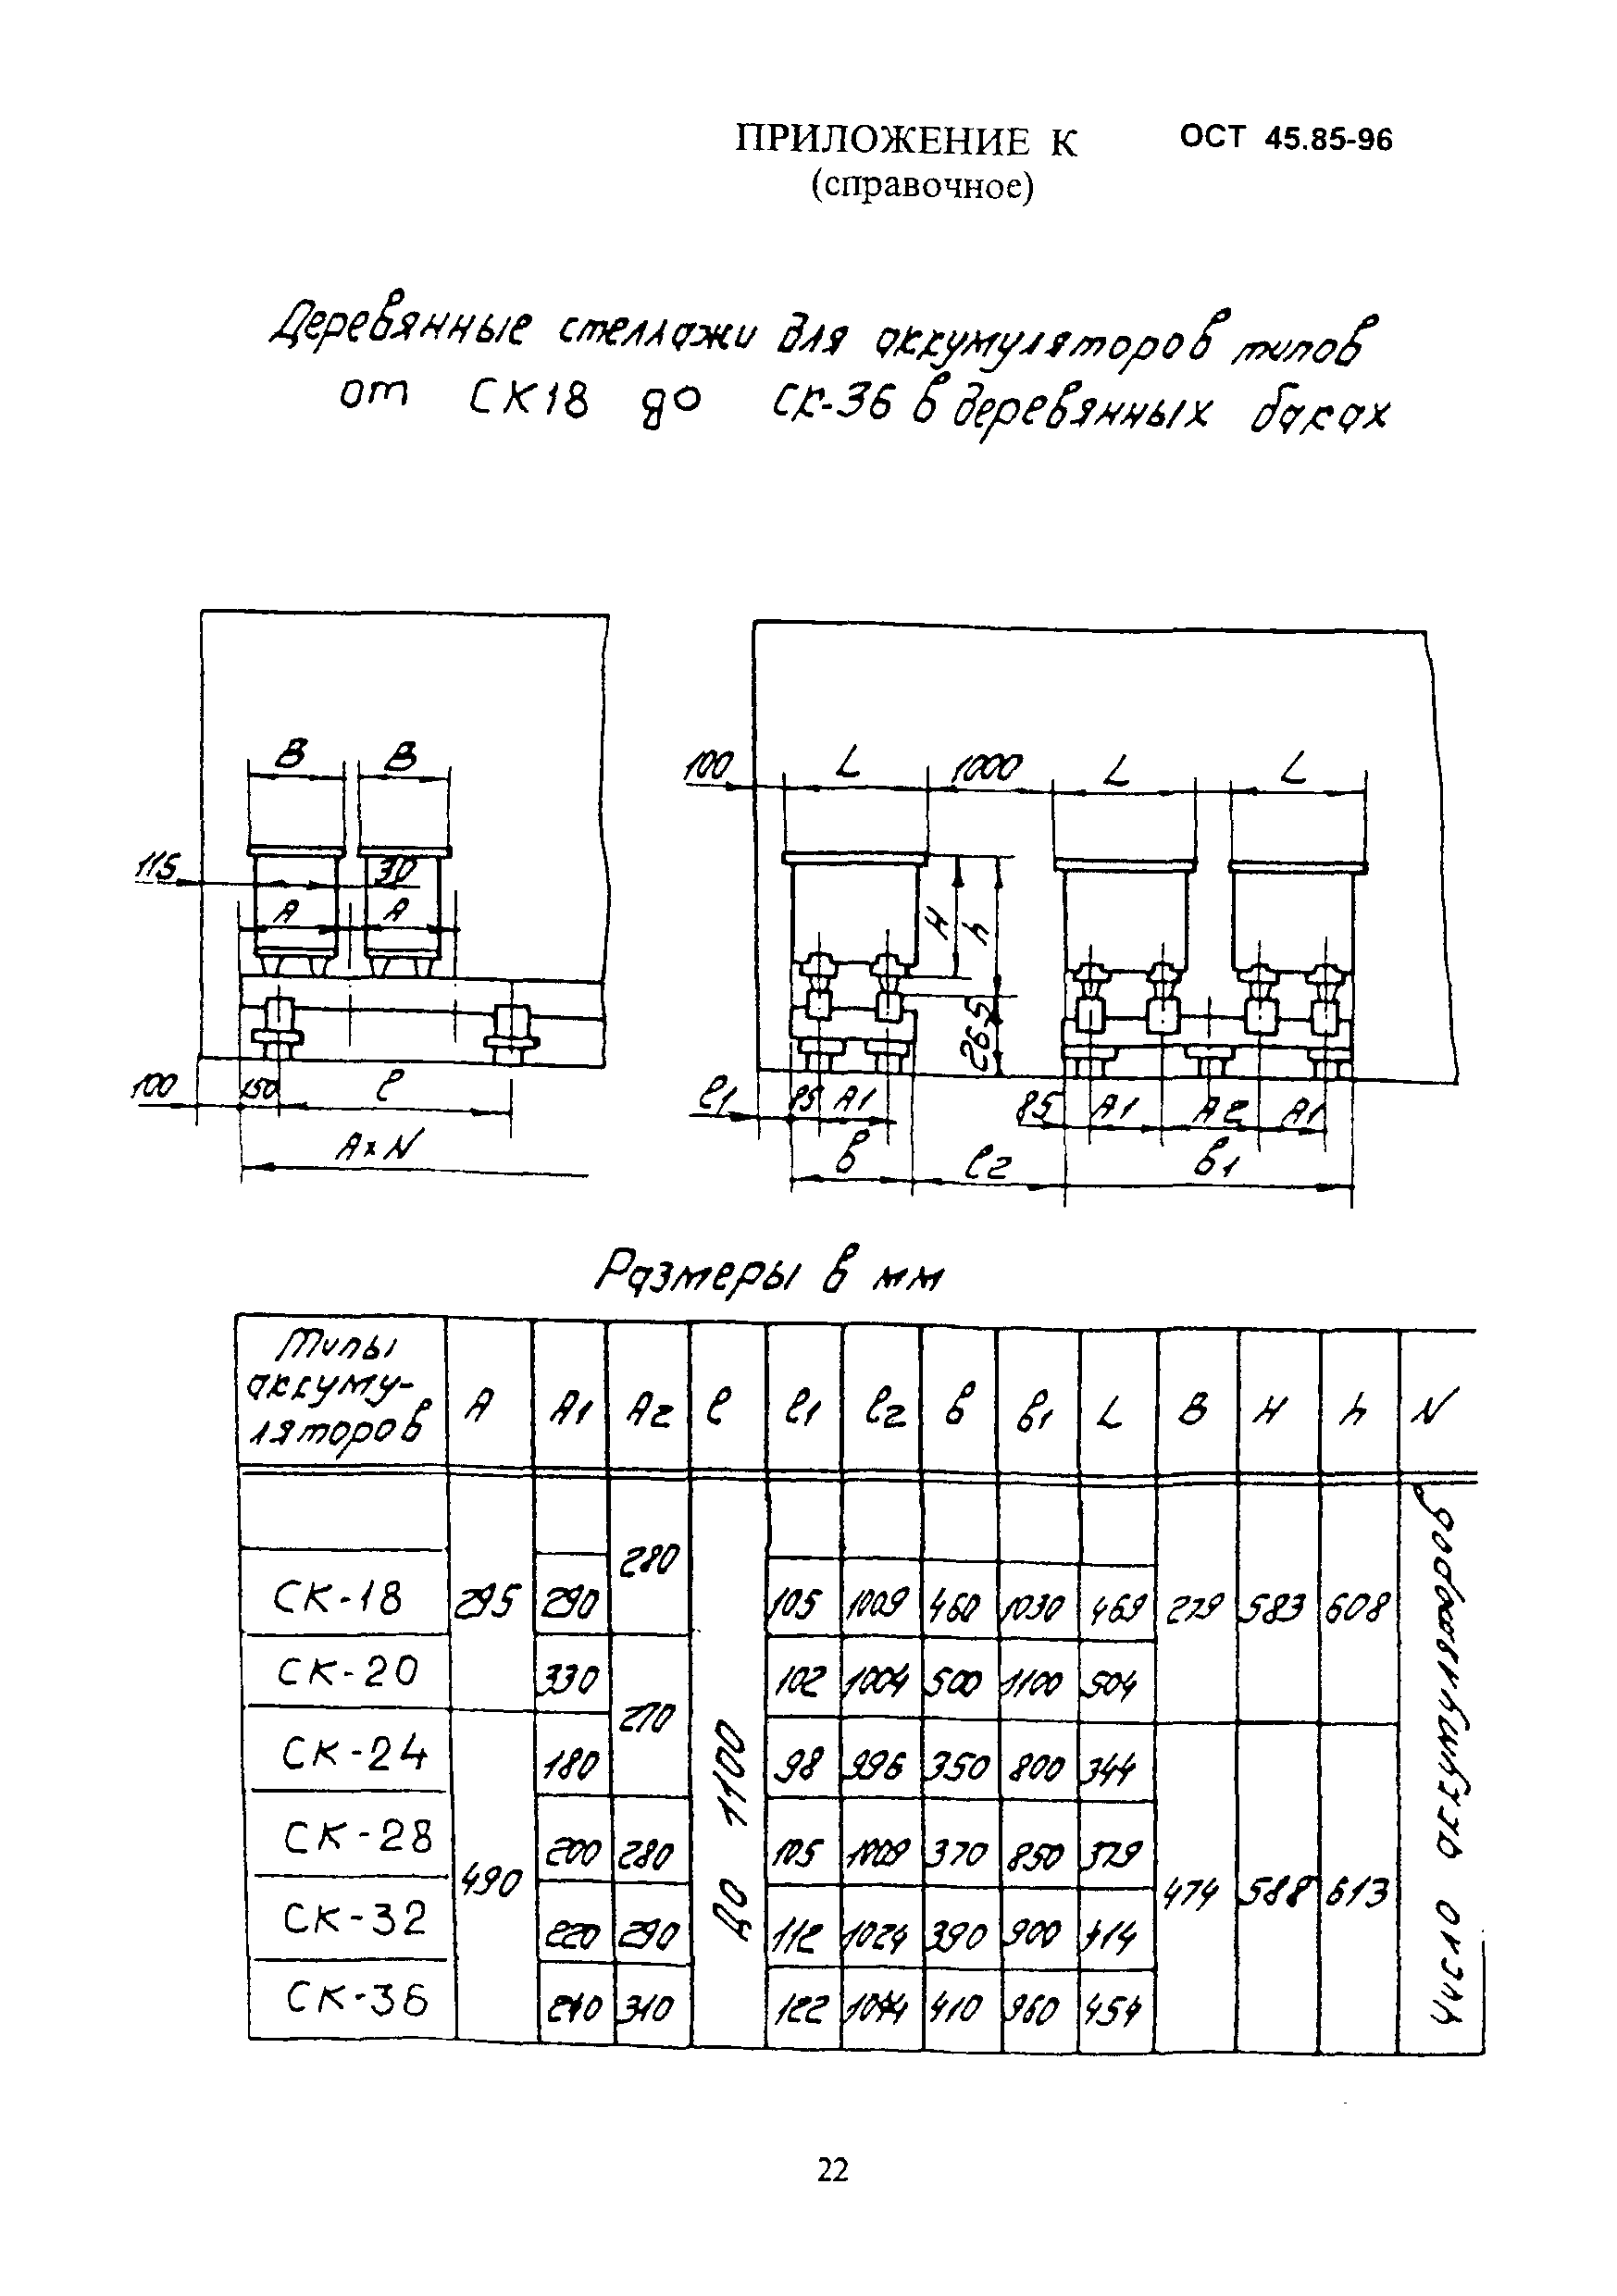 ПРИЛОЖЕНИЕ К ОСТ 45.85-96
(справочное)
Деревянные стеллажи для аккумуляторов типов
от СК18 до СК-36 в деревянных баках
В В
115 30
А А
100 150 ℓ
А×N
100 L 1000 L L
H h
265
ℓ1 85 А1 85 А1 А2 А1
в ℓ2 в1
Размеры в мм
Типы аккуму-
ляторов А А1 А2 ℓ ℓ1 ℓ2 в в1 L В H h N
СК-18 295 290 280 105 1009 460 1030 469 279 583 608
СК-20 330 102 1004 500 1100 504
СК-24 180 270 98 996 350 800 344
СК-28 200 280 105 1009 370 850 379
СК-32 490 220 290 112 1024 390 900 414 474 588 613
СК-36 240 310 122 1044 410 960 454
до 1100
Число аккумуляторов
22